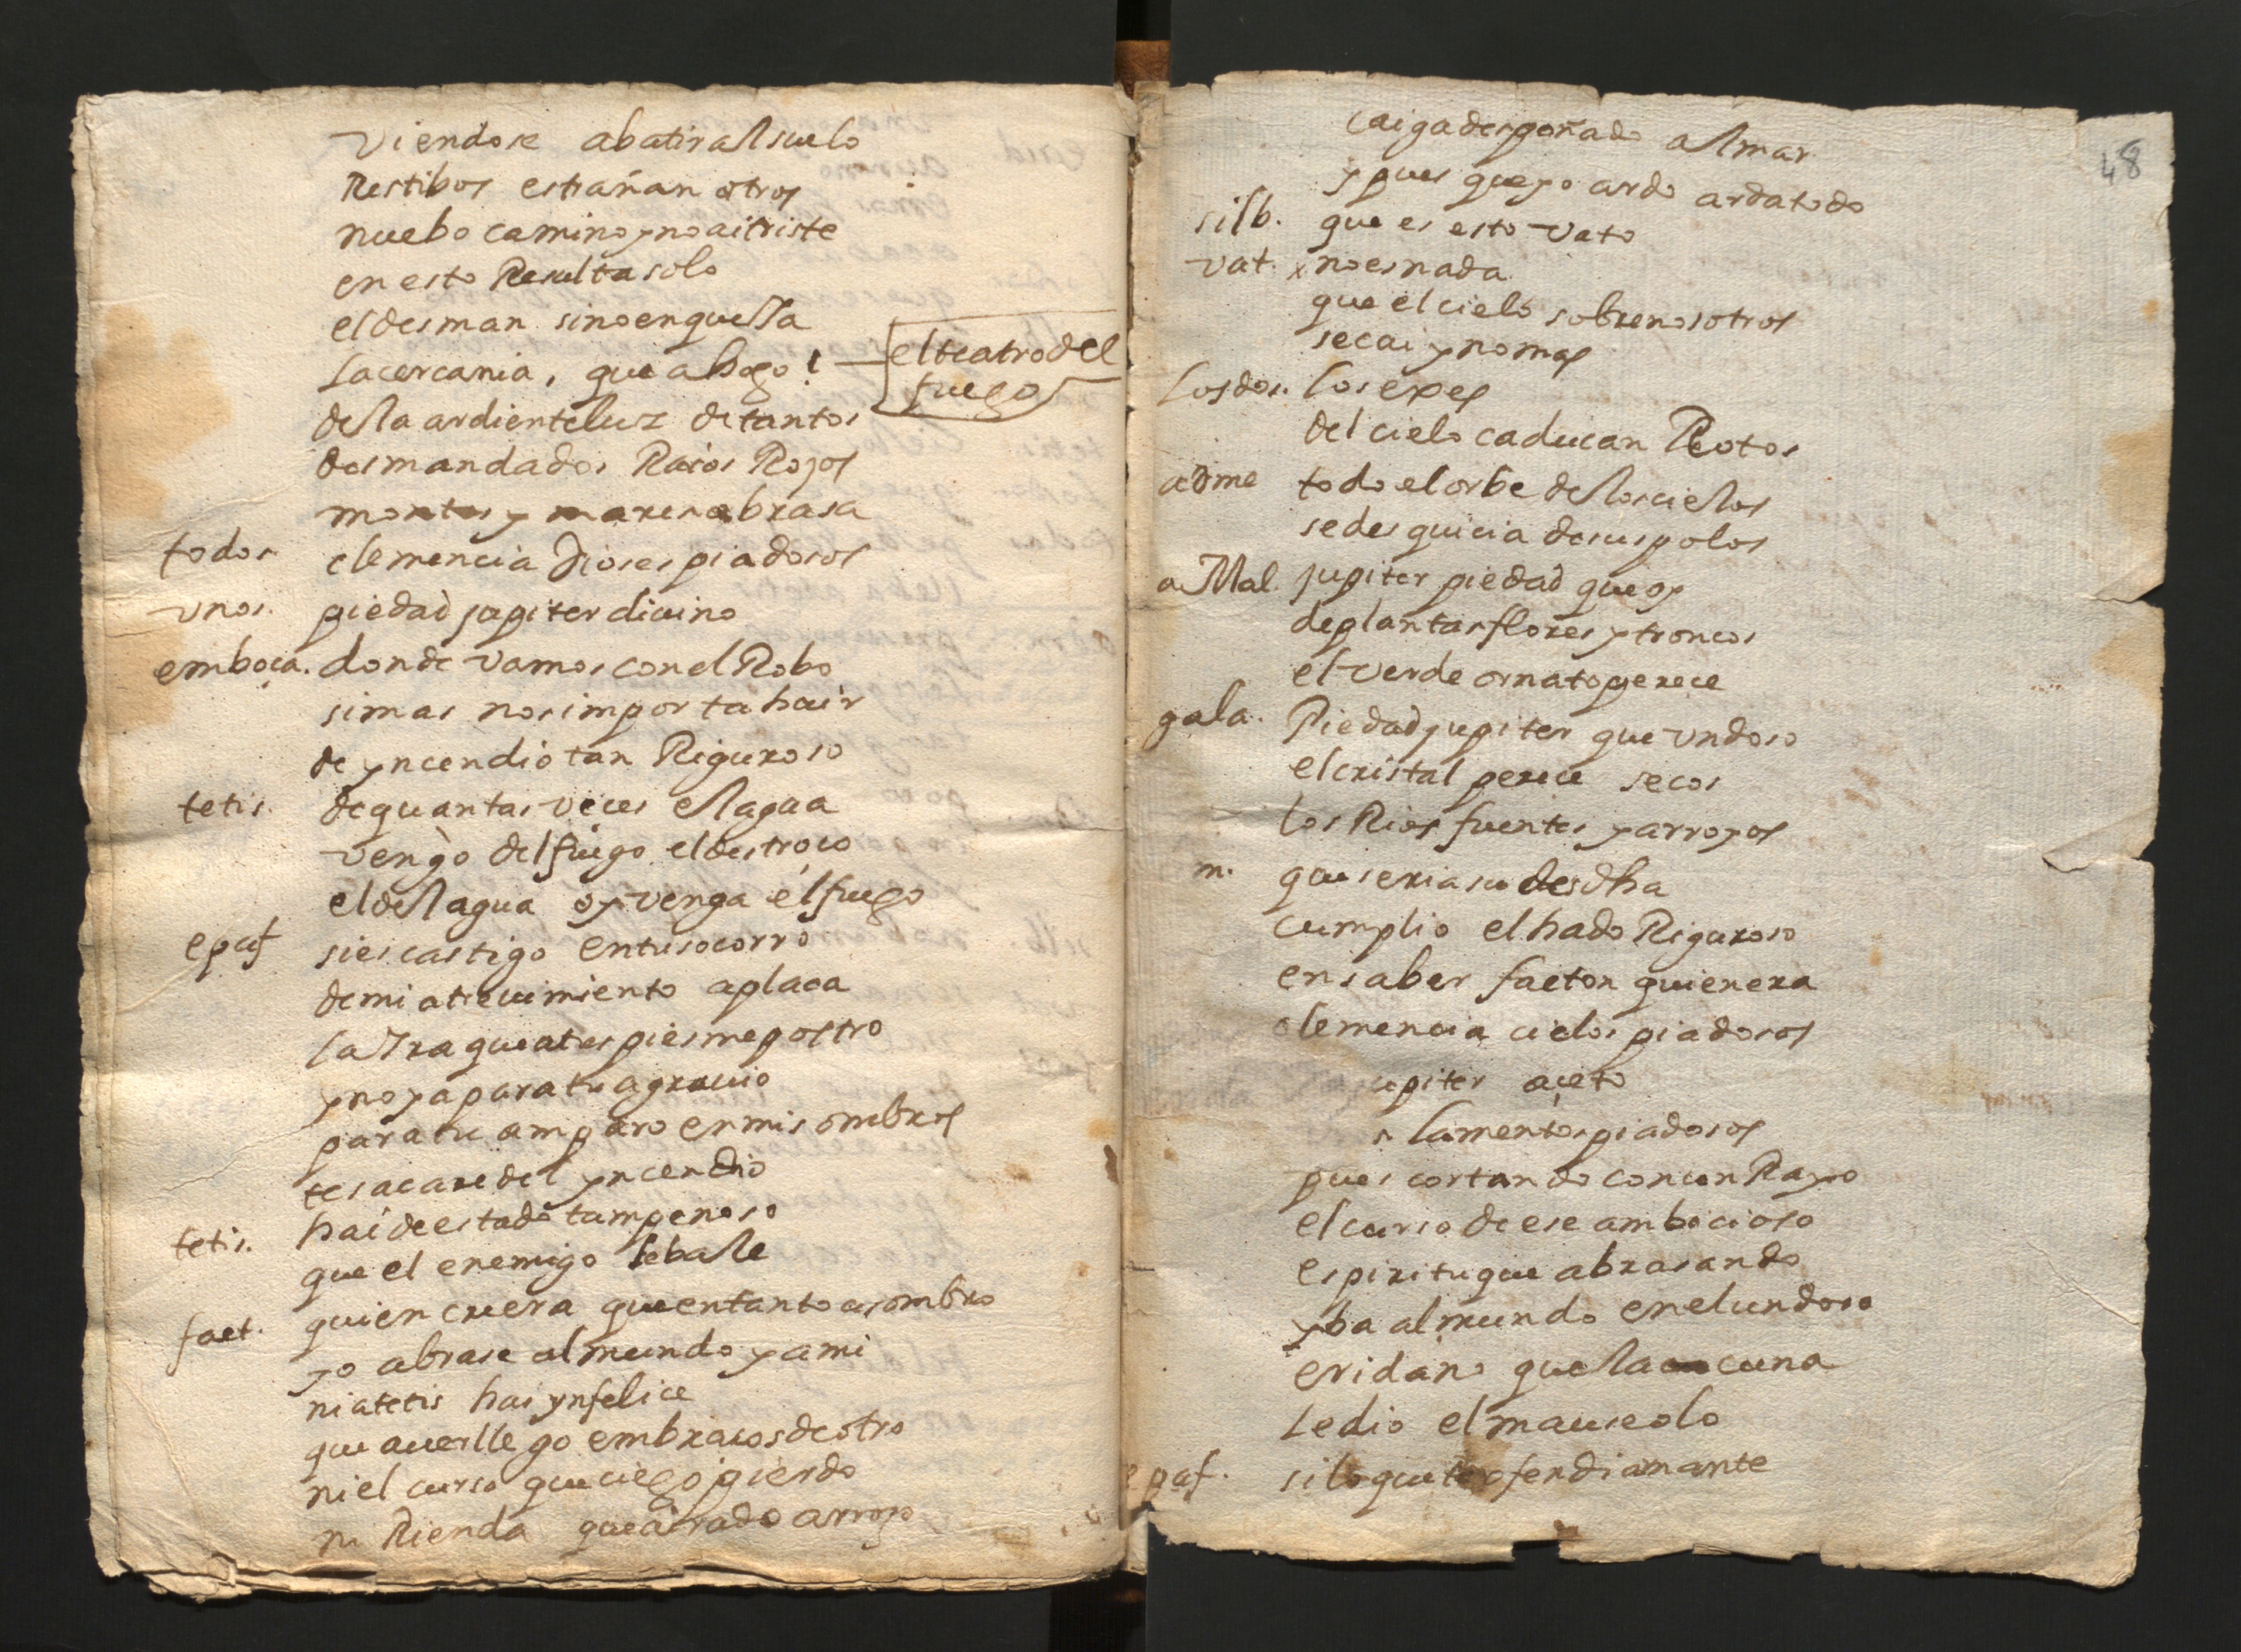 viendose abatir al suelo
Restibos estrañan otros
nuebo camino y no ai triste
en esto Resulta solo
el desman sino en que lla
la cercania, que ahogo!
el teatro del
fuego
de la ardiente luz de tantos
desmandados Raios Rojos
montes y mares abrasa
todos. clemencia Dioses piadosos
vnos. piedad jupiter diuino
emboça. donde vamos con el Robo
si mas nos importa huir
de yncendio tan Riguroso
tetis. de quantas veces el agua
vengo del fuego el destroço
el del agua oy venga el fuego
epaf si es castigo en tu socorro
de mi atreuimiento aplaca
la Ira que a tes pies me postro
y no ya para tu agrauio
para tu amparo en mis ombros
te sacare del yncendio
tetis. hai de estado tam penoso
que el enemigo le bale
faet. quien creera que en tanto asombro
yo abrase al mundo y a mi
ni a tetis hai ynfelice
que a uer llego em braços de otro
ni el curso que ciego pierdo
ni Rienda que airado arrojo
48
caiga despeñado al mar
y pues que yo ardo arda todo
silb. que es esto vato
vat. x no es nada
que el cielo sobre nosotros
se cai y no mas
los dos. los exes
del cielo caducan Rotos
adme todo el orbe de los cielos
se desquicia de sus polos
a Mal. jupiter piedad que oy
de plantas flores y troncos
el verde ornato perece
gala. Piedad jupiter que vndoso
el cristal perece secos
los Rios fuentes y arroyos
m. que seria su desdha
cumplio el hado Riguroso
en saber faeton quien era
clemencia cielos piadosos
upiter açeto
s lamentos piadosos
pues cortando con un Rayo
el curso de ese ambicioso
espiritu que abrasando
yba al mundo en el undoso
eridano que la cuna
le dio el mauseolo
epaf. si lo que te ofendi amante